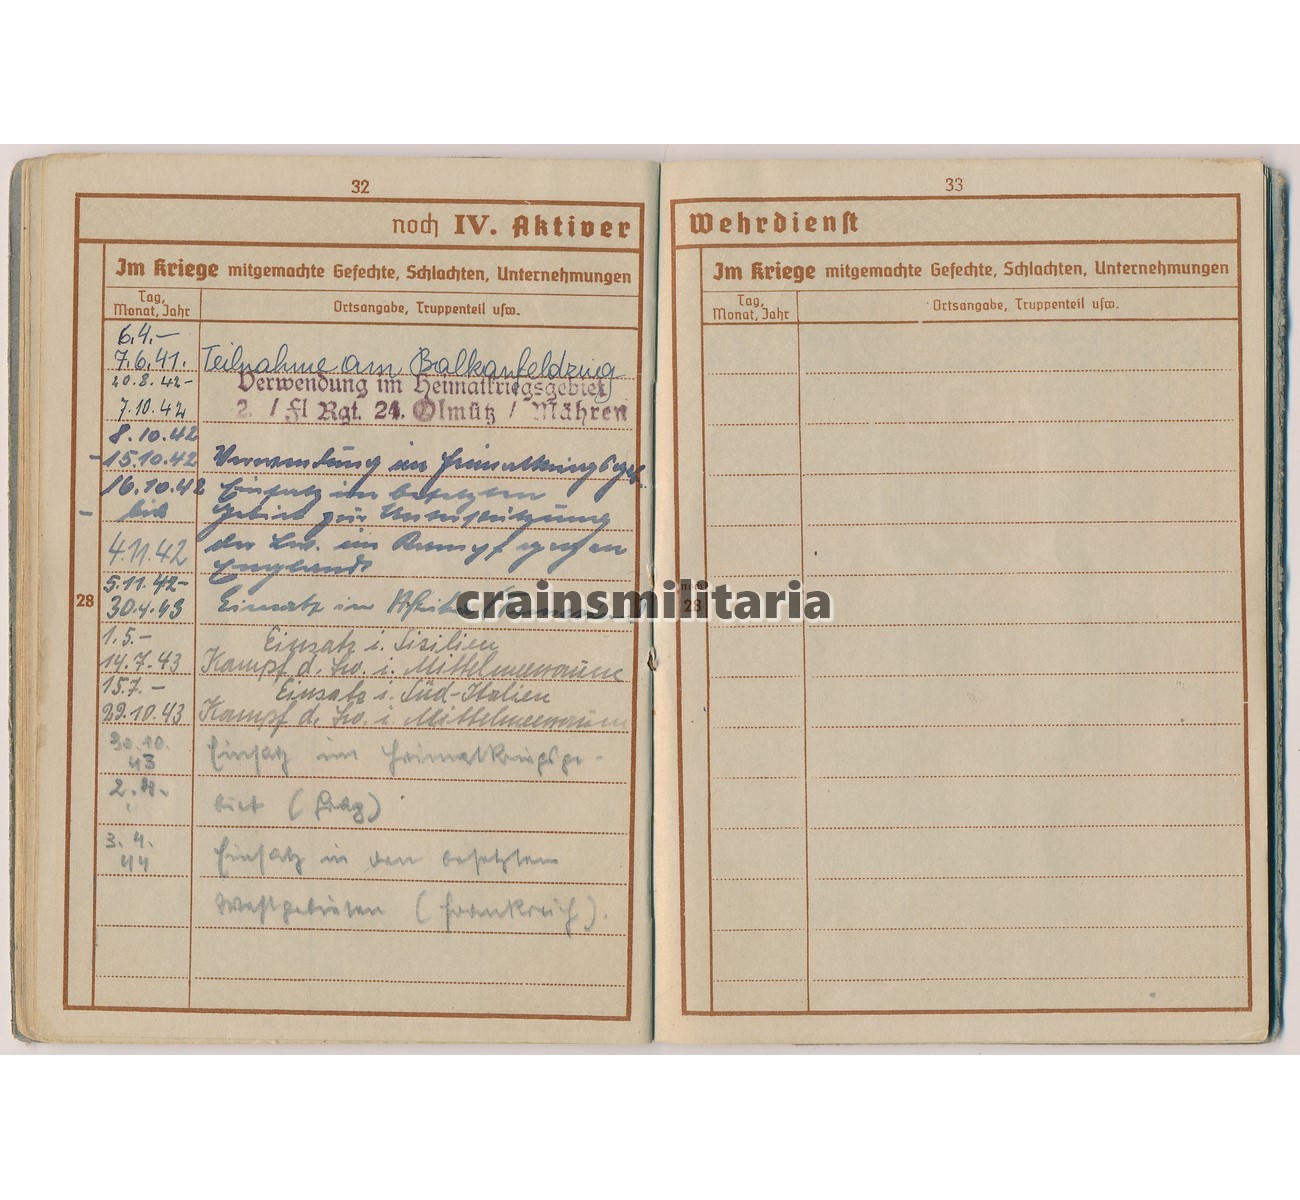 32
noch IV. Aktiver
Im Kriege mitgemachte Gefechte, Schlachten, Unternehmungen
Tag, Monat, Jahr
Ortsangabe, Truppenteil usw.
6.4.–
7.6.41. Teilnahme am Balkanfeldzug
20.8.42– Verwendung im Heimatkriegsgebiet
7.10.42 2. / Fl Rgt. 24. Olmütz / Mähren
8.10.42
–15.10.42 Verwendung im Heimatkriegsgeb.
16.10.42 Einsatz im besetzten
– bis Gebiet zur Unterstützung
4.11.42 der Lw. im Kampf gegen
England
5.11.42–
28
30.4.43 Einsatz in Afrika
1.5.– Einsatz i. Sizilien
14.7.43 Kampf d. Lw. i. Mittelmeerraum
15.7.– Einsatz i. Süd-Italien
29.10.43 Kampf d. Lw. i. Mittelmeerraum
30.10. Einsatz im Heimatkriegsge-
43
2.4. biet (Prag)
3.4. Einsatz in den besetzten
44
Westgebieten (Frankreich).
33
Wehrdienst
Im Kriege mitgemachte Gefechte, Schlachten, Unternehmungen
Tag, Monat, Jahr
Ortsangabe, Truppenteil usw.
noch
28
crainsmilitaria